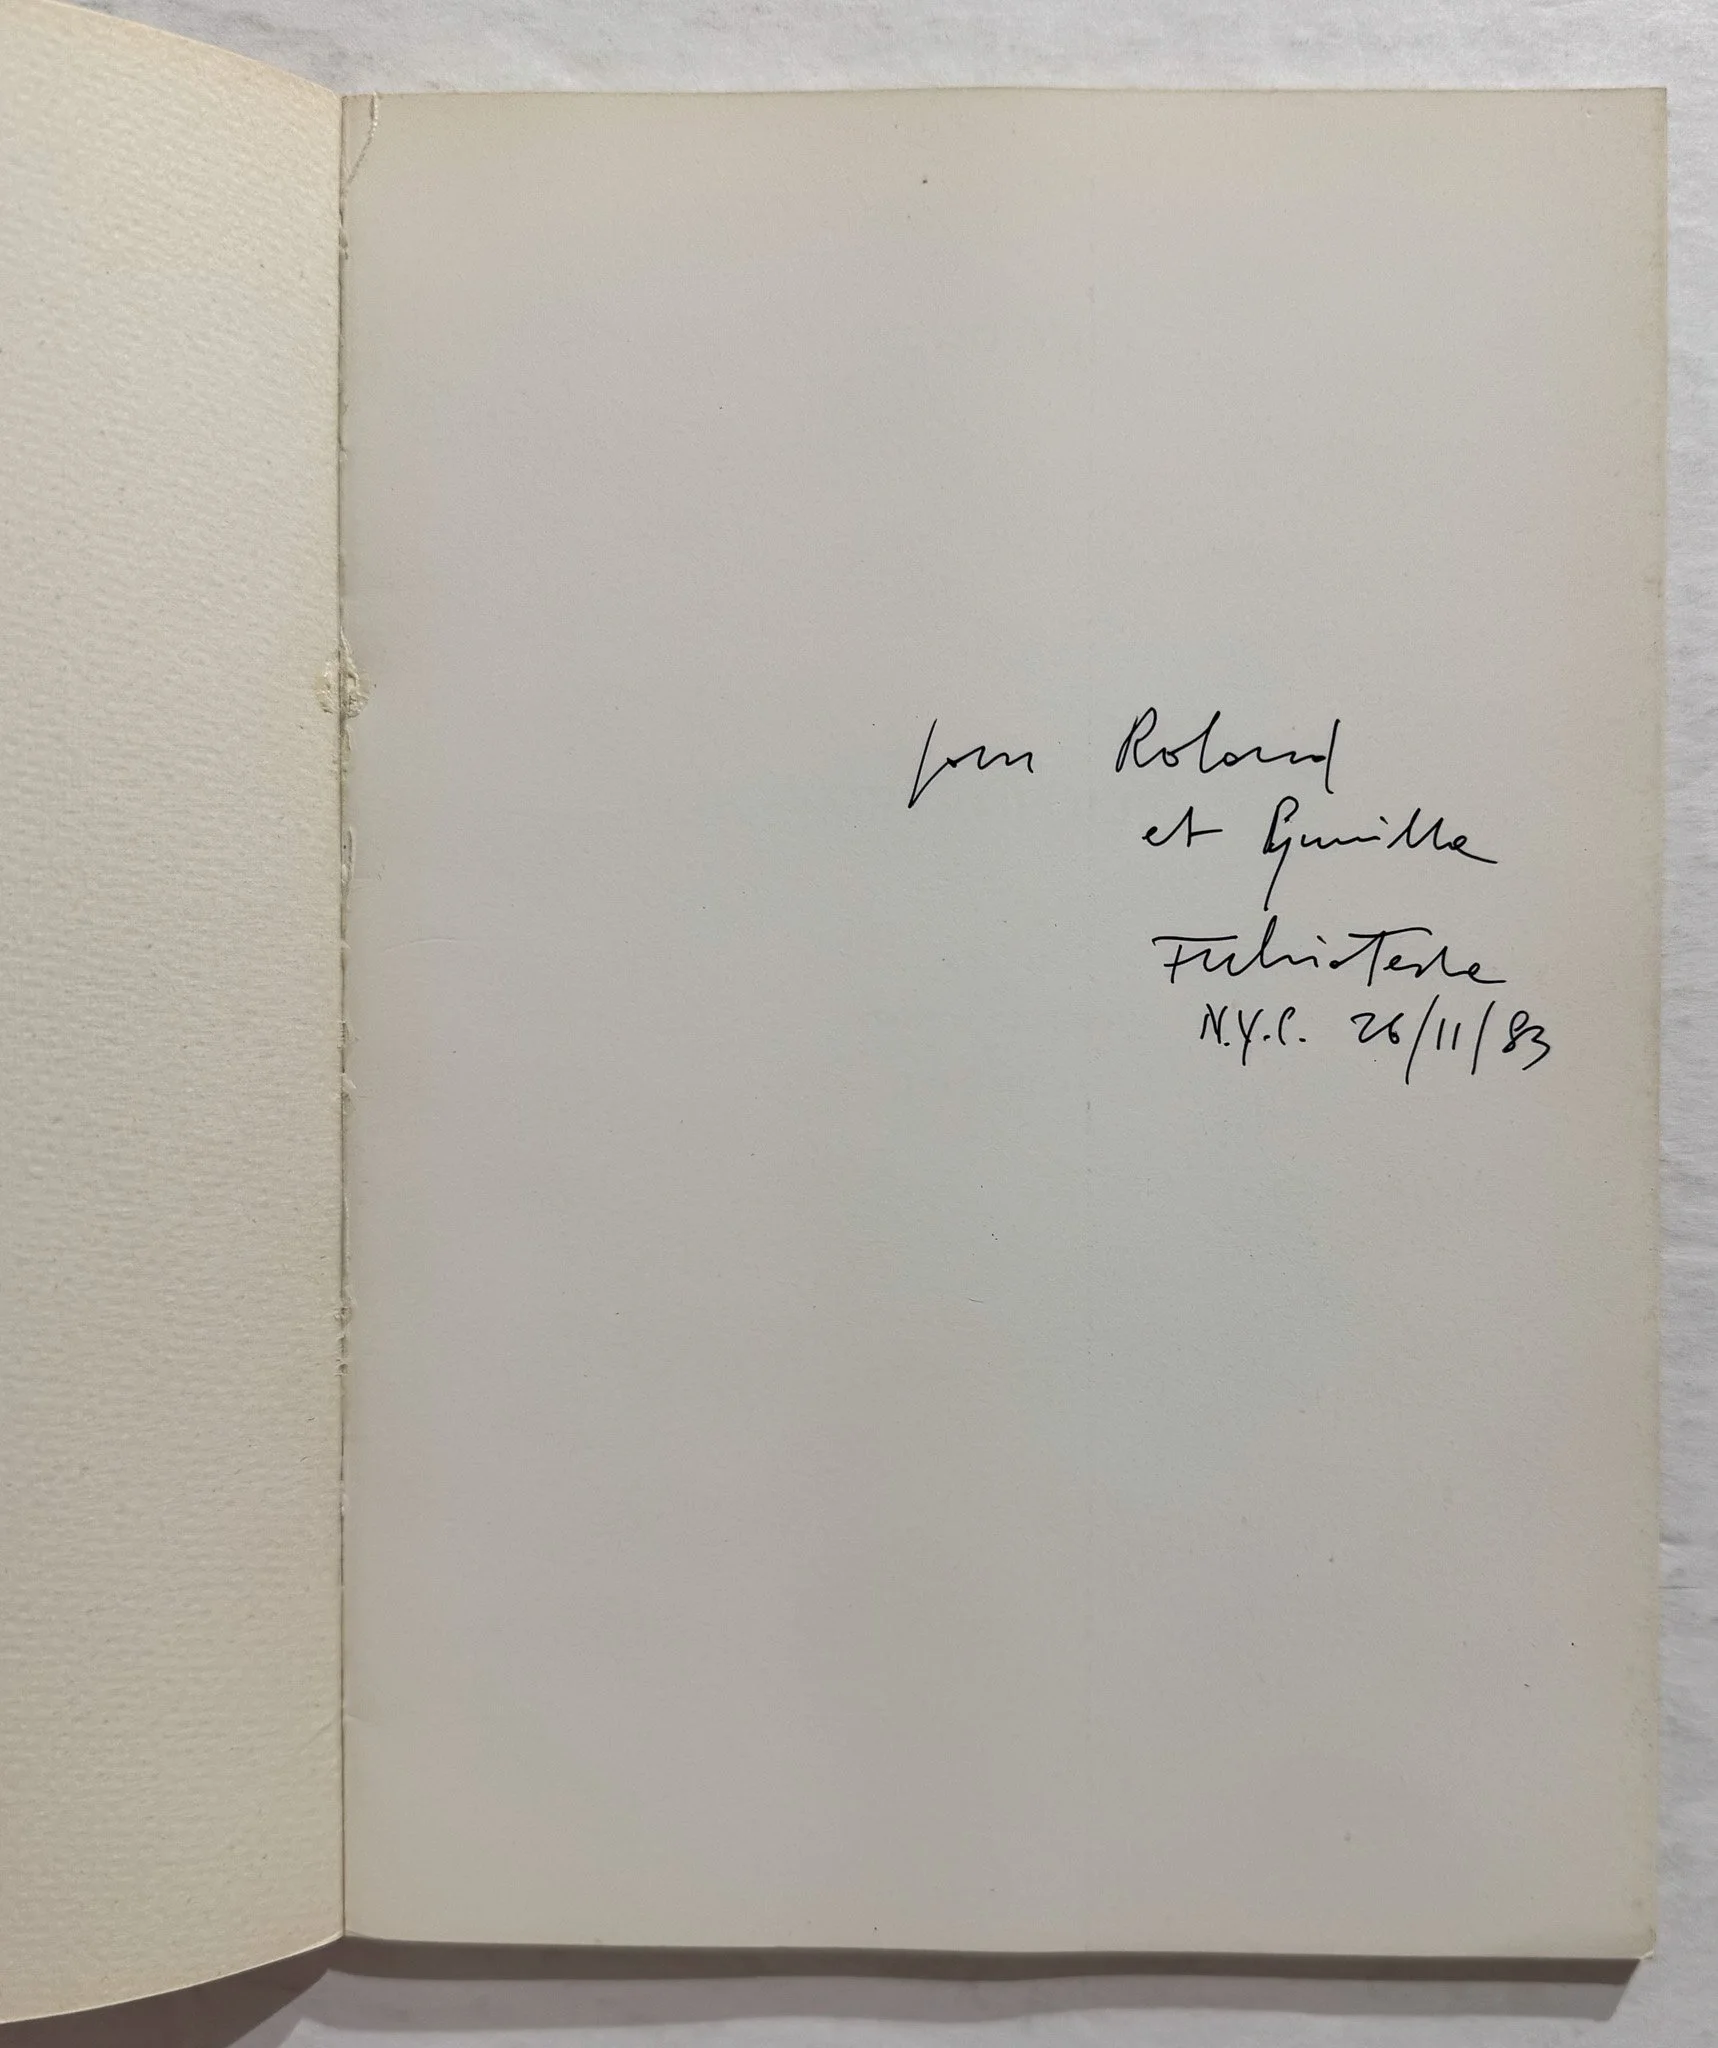 pour Roland
et Gunilla
Fulvio Testa
N.Y.C. 26/11/83